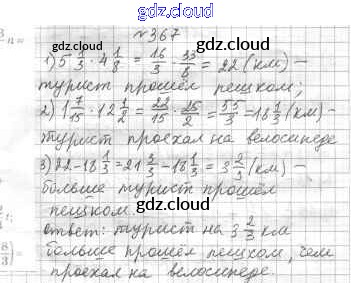 gdz.cloud
gdz.cloud
№367
1) 5 1/3 · 4 1/8 = 16/3 · 33/8 = 22 (км) –
турист прошёл пешком;
2) 1 7/15 · 12 1/2 = 22/15 · 25/2 = 55/3 = 18 1/3 (км) –
турист проехал на велосипеде
3) 22 - 18 1/3 = 21 3/3 - 18 1/3 = 3 2/3 (км) –
больше турист прошёл
пешком.
gdz.cloud
ответ: турист на 3 2/3 км
больше прошёл пешком, чем
проехал на велосипеде.
gdz.cloud